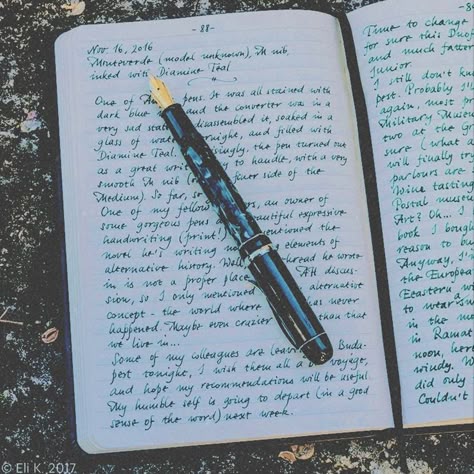 -88-
Nov. 16, 2016
Monteverde (model unknown), M nib,
inked with Diamine Teal
One of pens. It was all stained with
dark blue and the converter was in a
very sad state disassembled it, soaked in a
glass of night, and filled with
Diamine Teal. the pen turned out
as a great to handle, with a very
smooth M nib side of the
Medium). So far, so
One of my fellow an owner of
some gorgeous pens expressive
handwriting (print!) the
novel he's writing elements of
alternative history. the thread he wrote
in is not a proper place discus-
sion, so I only mentioned alternative
concept - the world where has never
happened. Maybe even crazier than that
we live in...
Some of my colleagues are Buda-
pest tonight, I wish them all a voyage,
and hope my recommendations will be useful.
My humble self is going to depart (in a good
sense of the word) next week.
Time to change
for sure this
and much
Junior.
I still don't
pest. Probably I'
again, most
Military
two at the
sure (what a
will finally
parlours are
Wine tasting
Postal museum
Art? Oh... I
book I bought
reason to
Anyway, I'm
the European
Eastern
to wear a
in the
in Ramat
noon, here
windy. W
did only
Couldn't
© Eli K. 2017